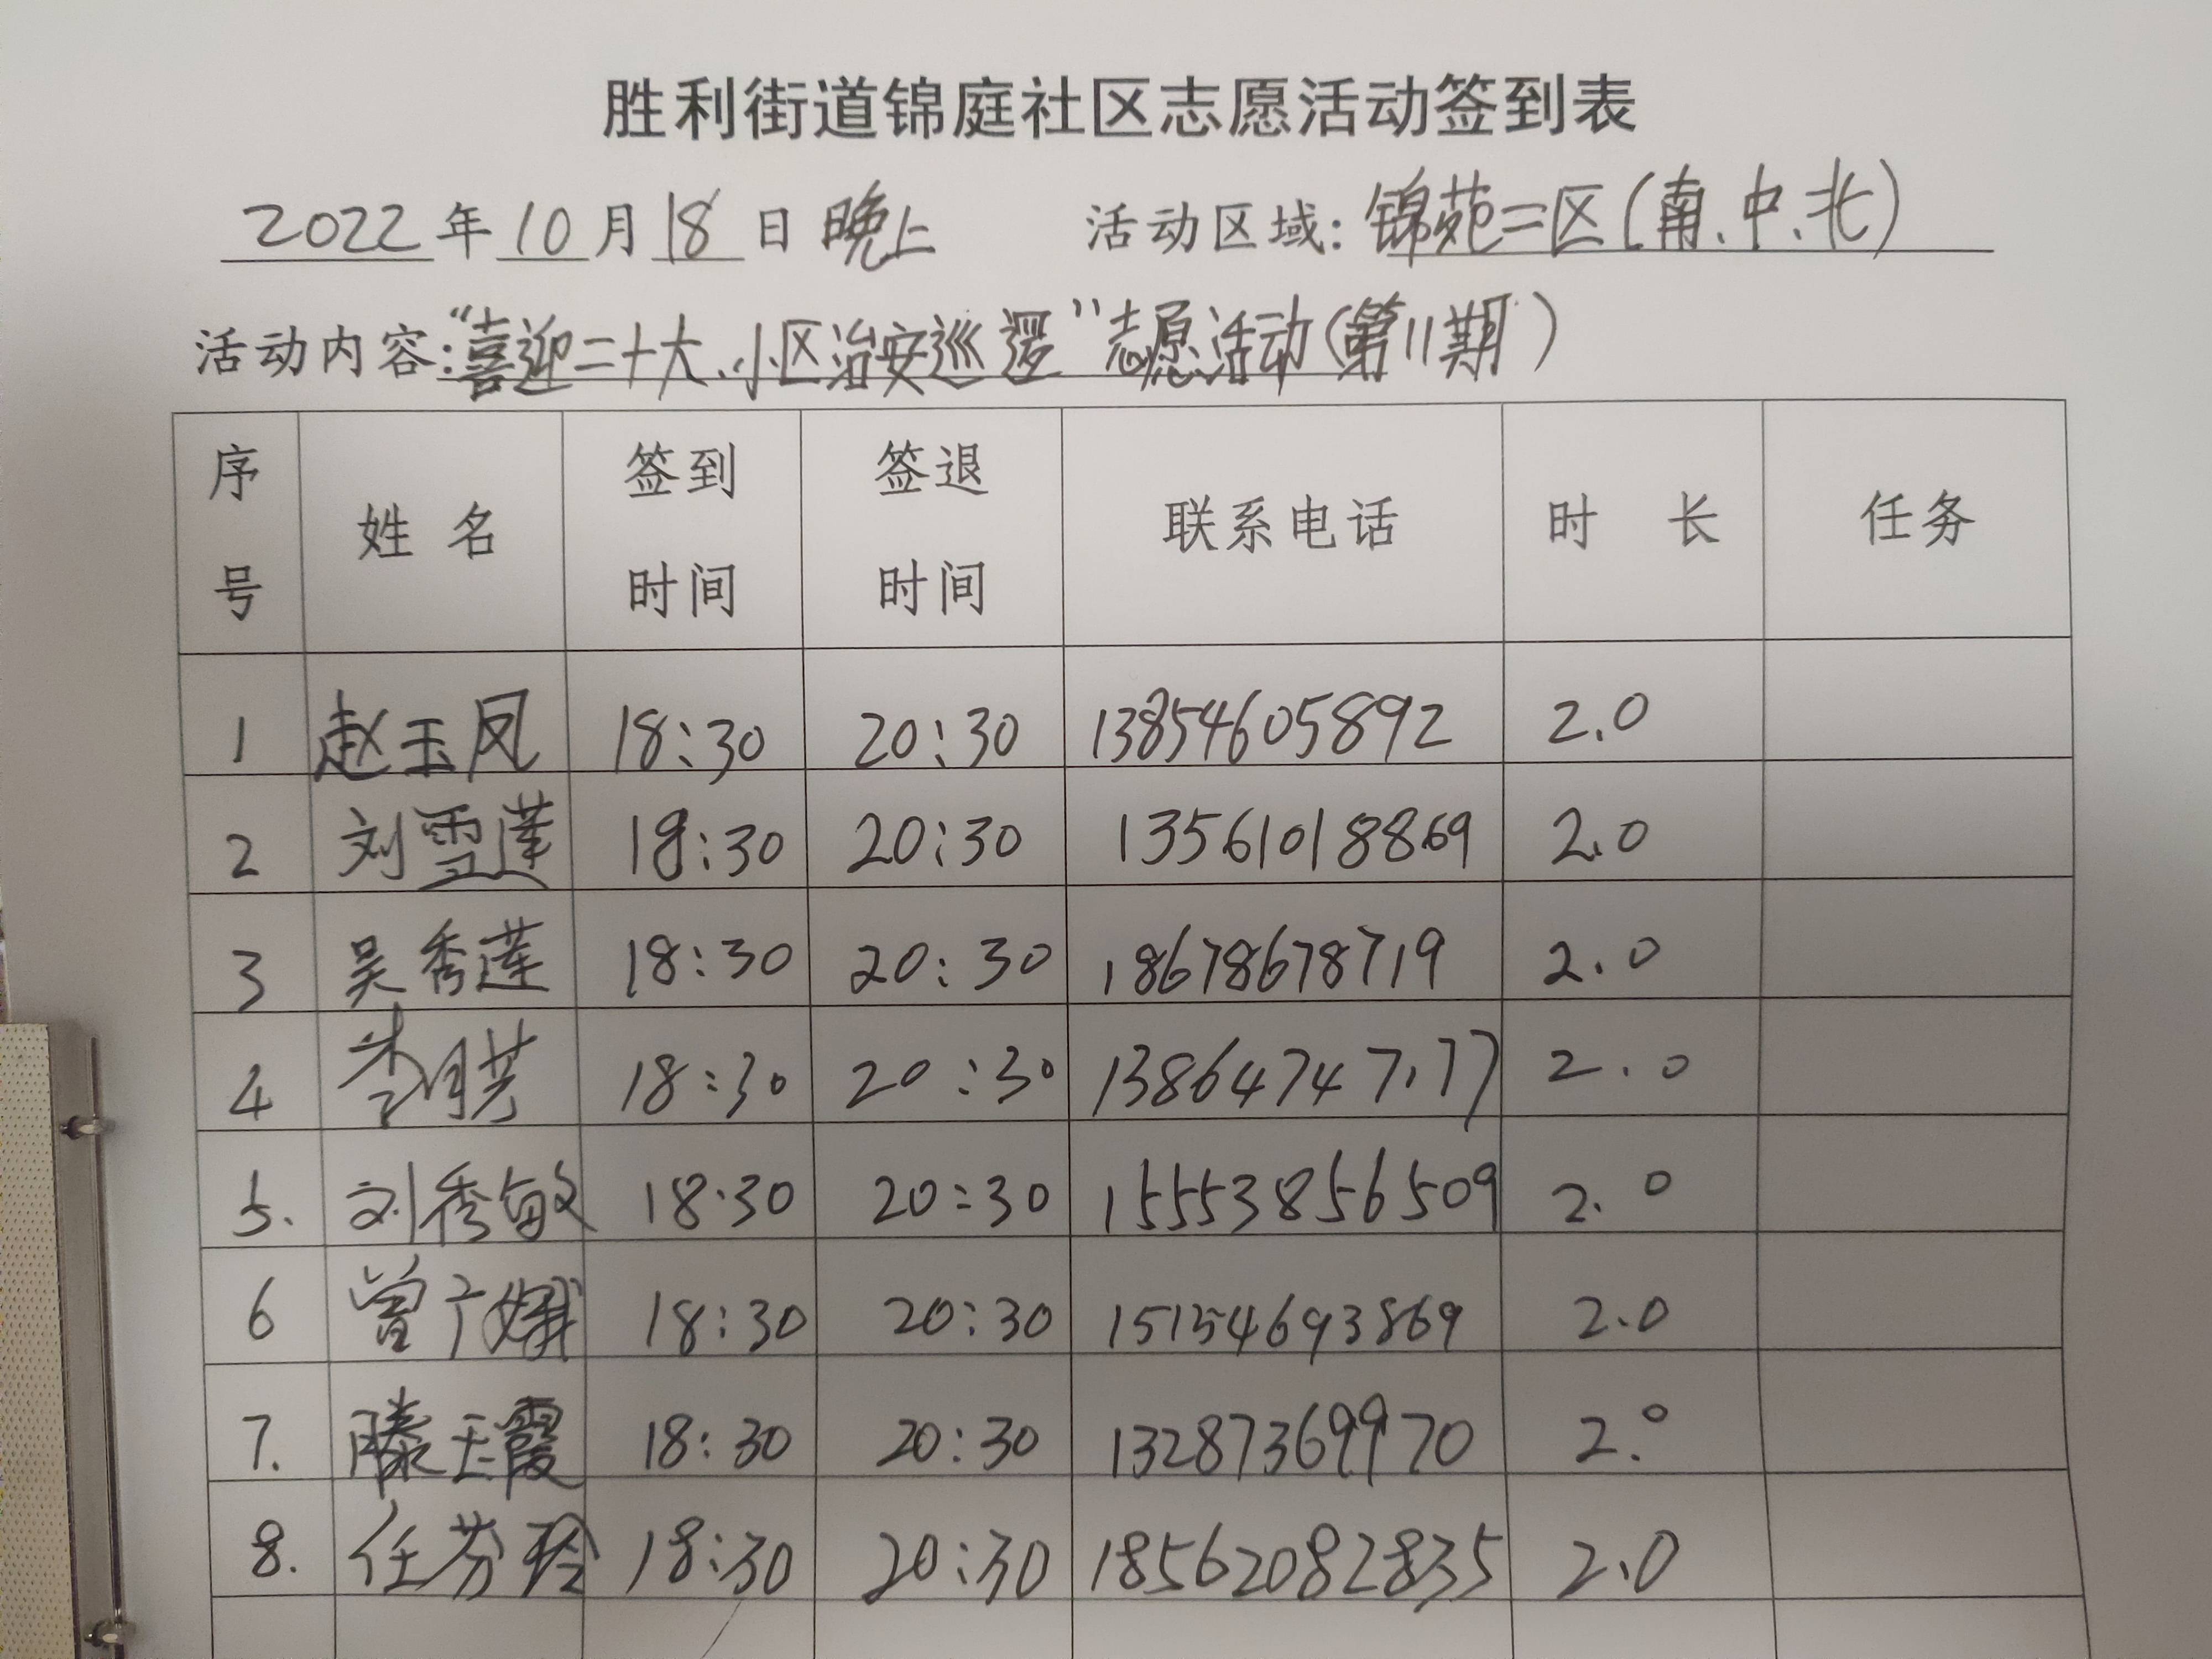 胜利街道锦庭社区志愿活动签到表
2022年10月18日晚上 活动区域:锦苑二区(南、中、北)
活动内容:“喜迎二十大、小区治安巡逻”志愿活动(第11期)
序号 姓名 签到时间 签退时间 联系电话 时长 任务
1 赵玉凤 18:30 20:30 13854605892 2.0
2 刘雪莲 18:30 20:30 13561018869 2.0
3 吴秀莲 18:30 20:30 18678678719 2.0
4 李月芳 18:30 20:30 13864747177 2.0
5. 刘秀敏 18:30 20:30 15553856509 2.0
6 曾广娥 18:30 20:30 15154693869 2.0
7. 滕玉霞 18:30 20:30 13287369970 2.0
8. 任芬玲 18:30 20:30 18562082835 2.0